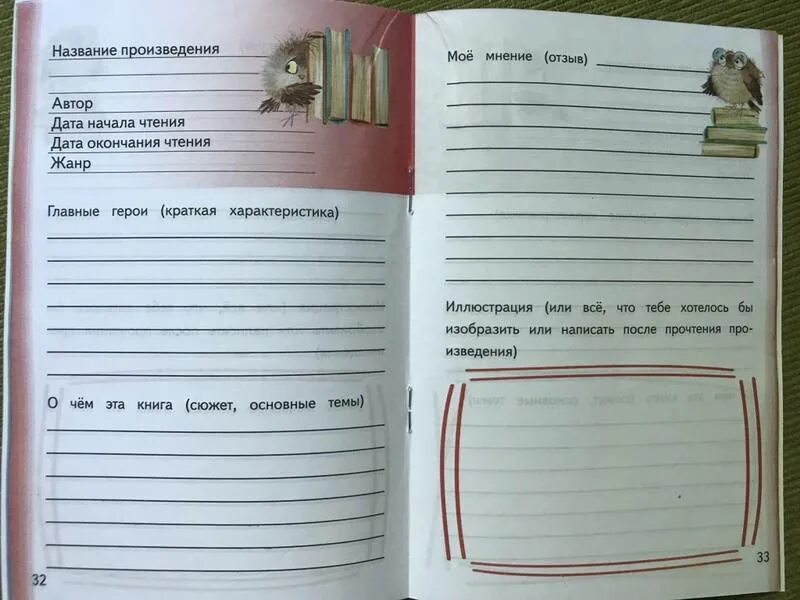 Название произведения
Автор
Дата начала чтения
Дата окончания чтения
Жанр
Главные герои (краткая характеристика)
О чём эта книга (сюжет, основные темы)
32
Моё мнение (отзыв)
Иллюстрация (или всё, что тебе хотелось бы
изобразить или написать после прочтения про-
изведения)
33